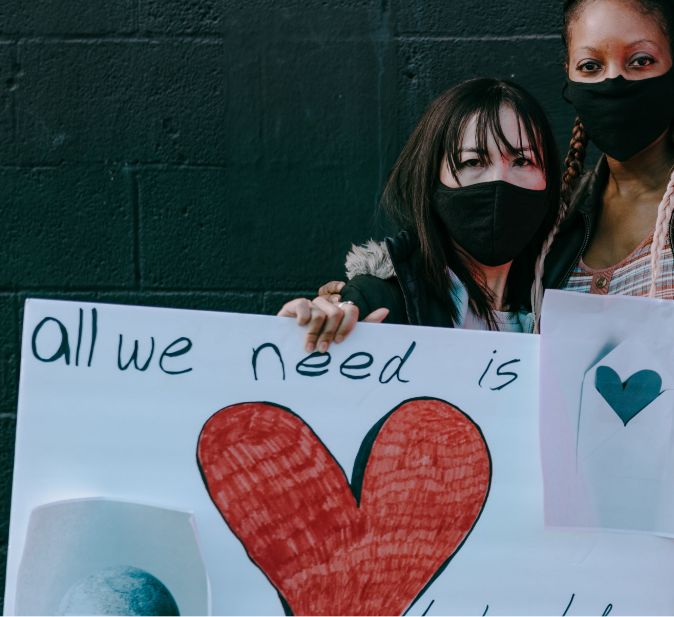 all we need is